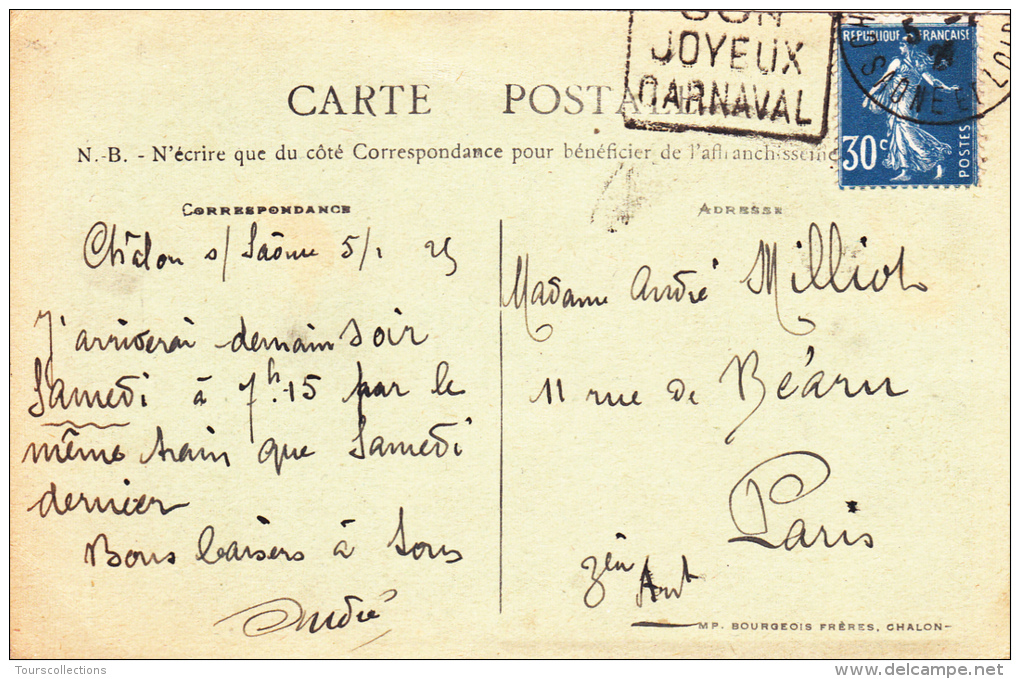 SON
JOYEUX
CARNAVAL
5 -
REPUBLIQUE FRANÇAISE
30c
POSTES
SAONE ET LOIRE
CARTE POSTALE
N.-B. - N'écrire que du côté Correspondance pour bénéficier de l'affranchisseme
CORRESPONDANCE
ADRESSE
Châlon s/ Saône 5/1 25
J'arriverai demain soir
Samedi à 7h.15 par le
même train que Samedi
dernier
Bons baisers à tous
André
Madame André Milliot
11 rue de Béarn
Paris
3em Arrt
MP. BOURGEOIS FRÈRES, CHALON-
Tourscollections
delcampe.net